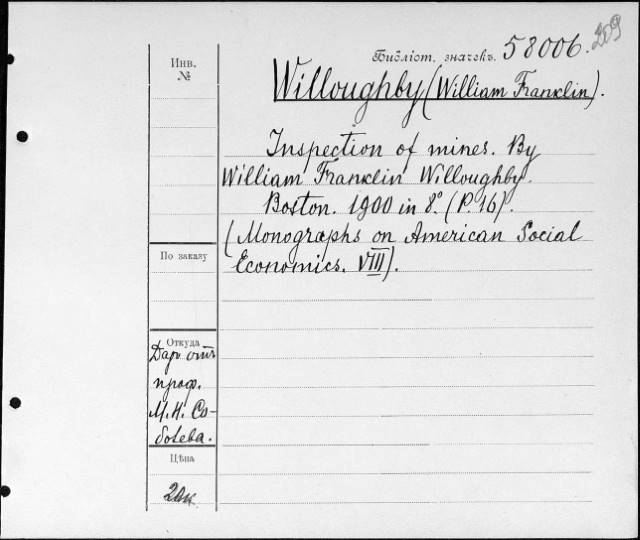 Библіот. значекъ. 58006. 209
Инв. №
Willoughby (William Franklin).
Inspection of mines. By
William Franklin Willoughby.
Boston. 1900 in 8°. (P. 16).
(Monographs on American Social
Economics. VIII).
По заказу
Откуда
Даръ отъ
проф.
М.Н. Со-
болева.
Цѣна
20к